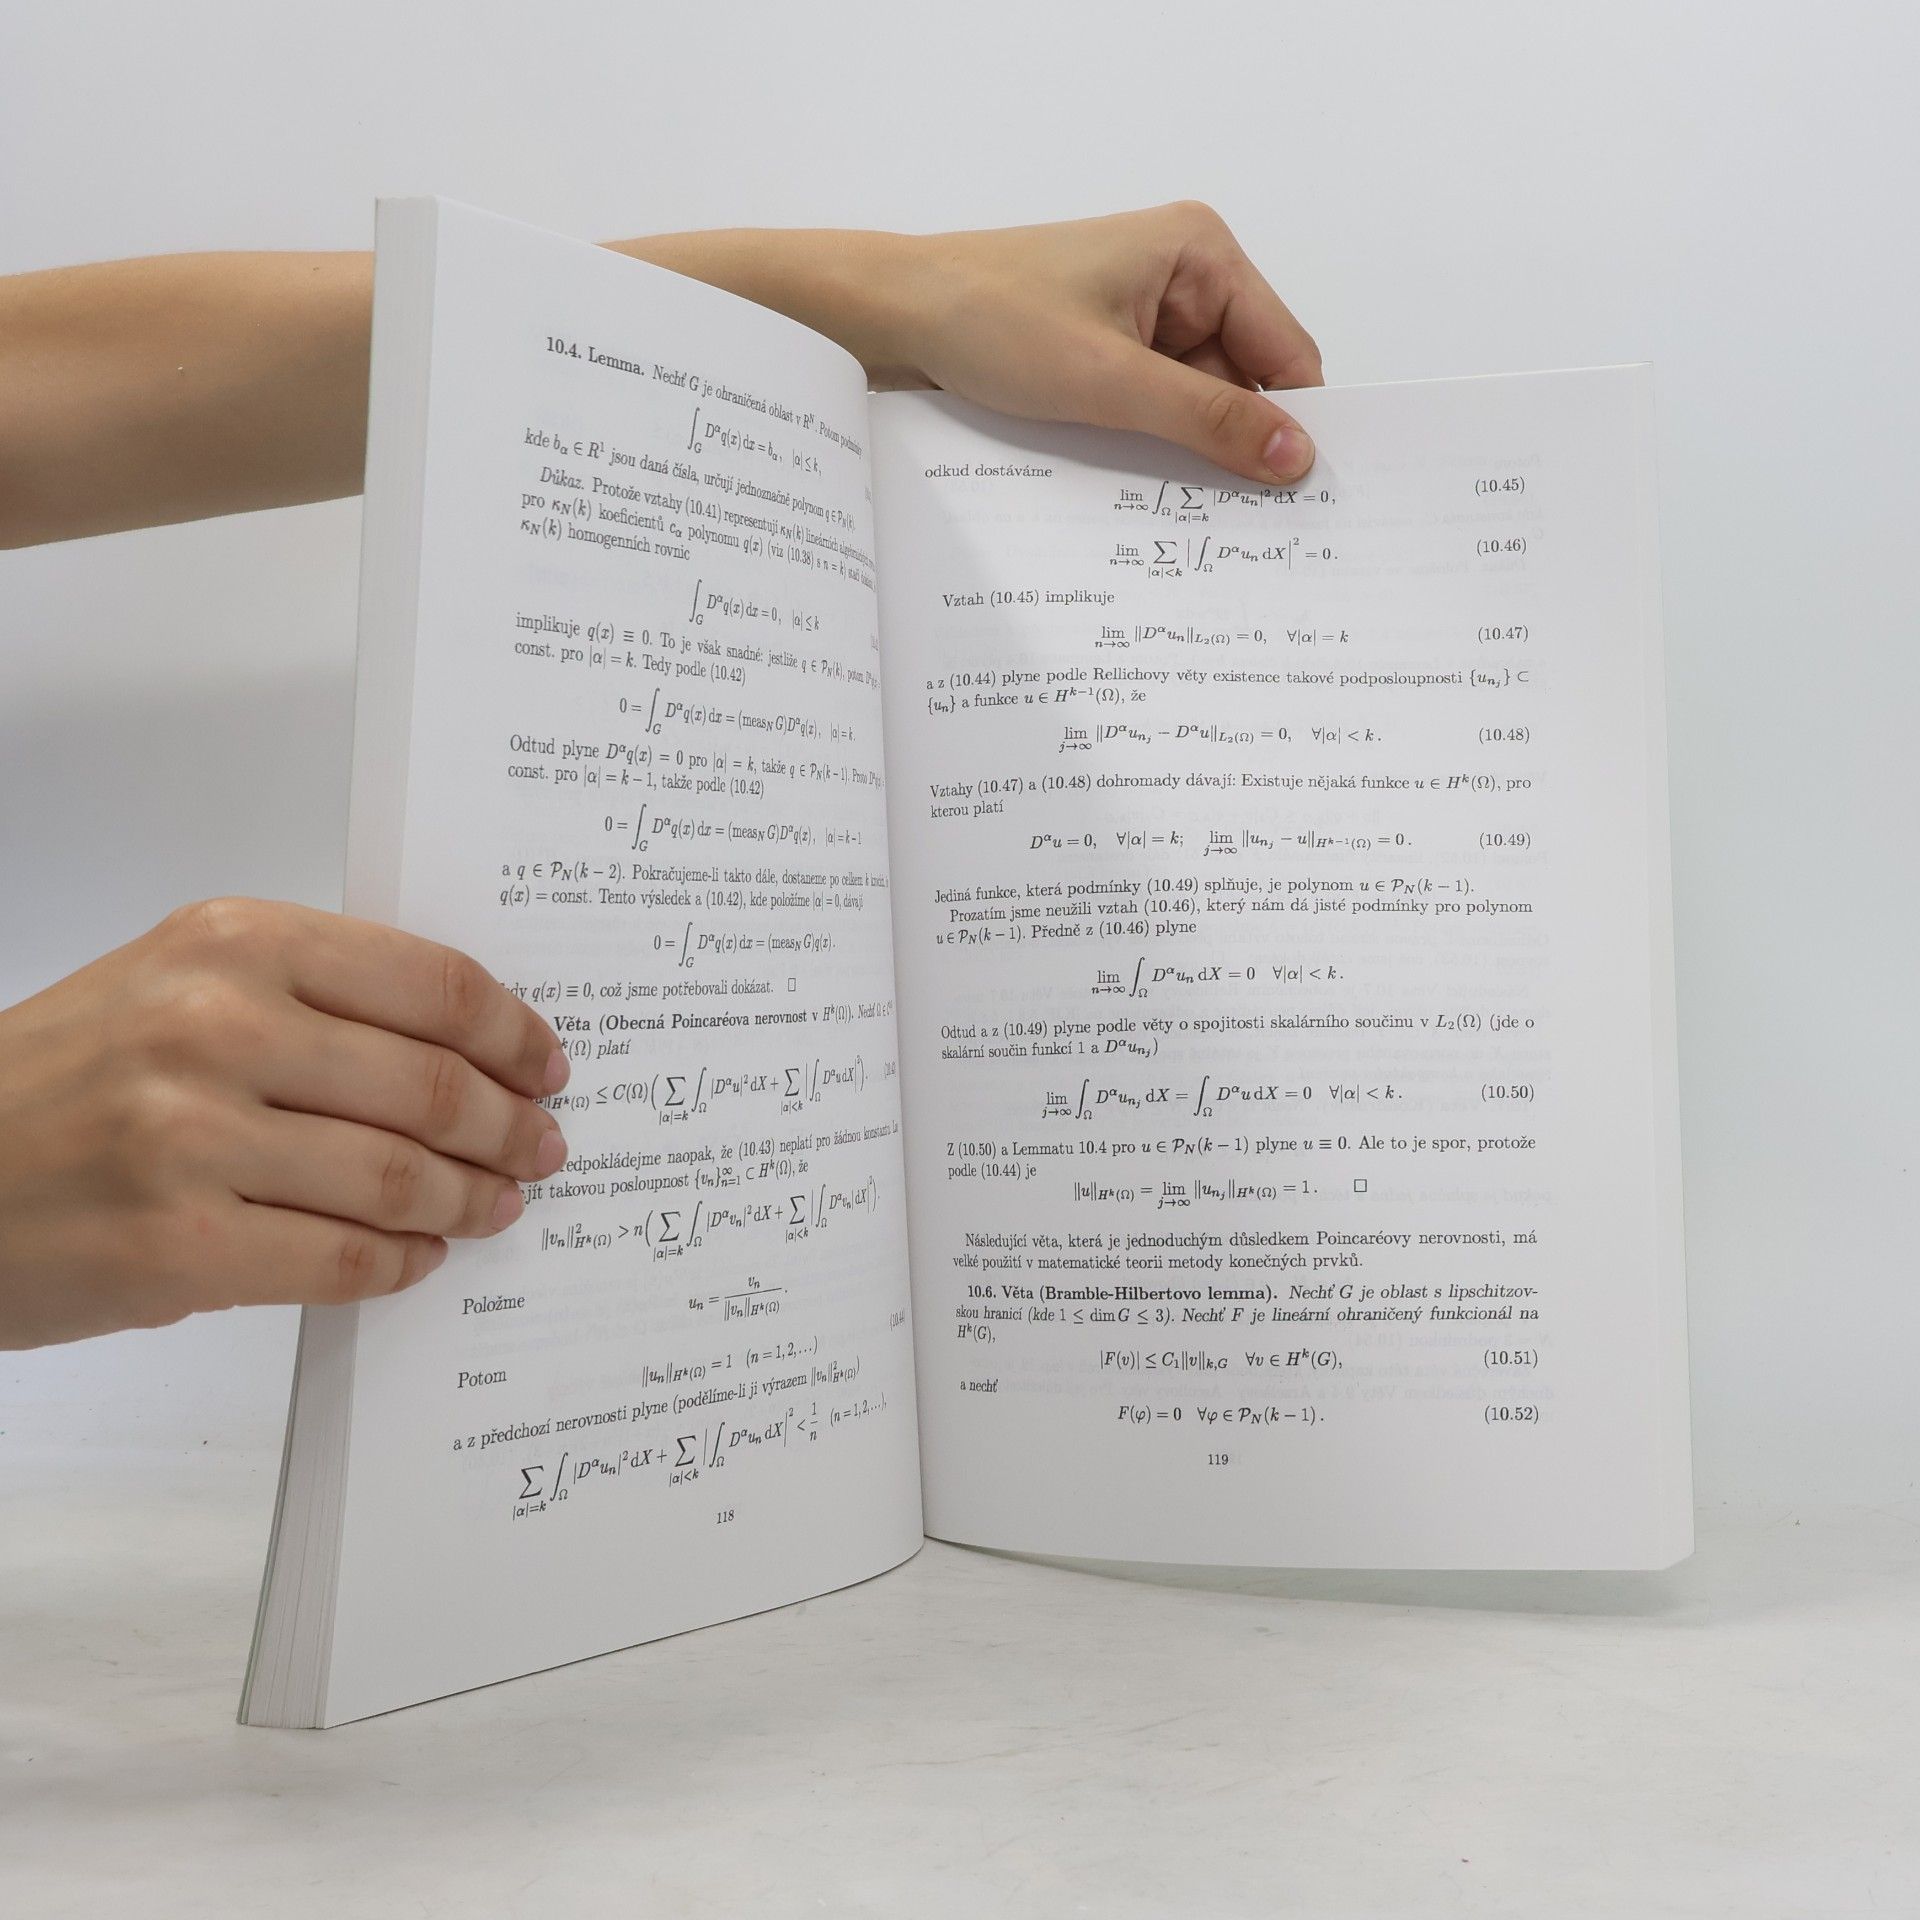 10.4. Lemma. Nechť G je ohraničená oblast v R^N. Potom podmínky
∫_G D^α q(x) dx = b_α, |α| ≤ k,
kde b_α ∈ R^1 jsou daná čísla, určují jednoznačně polynom q ∈ P_N(k).
Důkaz. Protože vztahy (10.41) representují κ_N(k) lineárních algebraických
pro κ_N(k) koeficientů c_α polynomu q(x) (viz (10.38) s n = k) stačí
κ_N(k) homogenních rovnic
∫_G D^α q(x) dx = 0, |α| ≤ k
implikuje q(x) ≡ 0. To je však snadné: jestliže q ∈ P_N(k), potom
const. pro |α| = k. Tedy podle (10.42)
0 = ∫_G D^α q(x) dx = (meas_N G) D^α q(x), |α| = k.
Odtud plyne D^α q(x) = 0 pro |α| = k, takže q ∈ P_N(k − 1). Proto
const. pro |α| = k − 1, takže podle (10.42)
0 = ∫_G D^α q(x) dx = (meas_N G) D^α q(x), |α| = k − 1
a q ∈ P_N(k − 2). Pokračujeme-li takto dále, dostaneme po celkem k
q(x) = const. Tento výsledek a (10.42), kde položíme |α| = 0, dávají
0 = ∫_G D^α q(x) dx = (meas_N G) q(x).
q(x) ≡ 0, což jsme potřebovali dokázat. □
Věta (Obecná Poincaréova nerovnost v H^k(Ω)). Nechť Ω ∈
(Ω) platí
H^k(Ω) ≤ C(Ω)(∑_{|α|=k} ∫_Ω |D^α u|^2 dX + ∑_{|α|<k} |∫_Ω D^α u dX|^2).
naopak, že (10.43) neplatí pro žádnou konstantu.
takovou posloupnost {v_n}_{n=1}^∞ ⊂ H^k(Ω), že
‖v_n‖^2_{H^k(Ω)} > n(∑_{|α|=k} ∫_Ω |D^α v_n|^2 dX + ∑_{|α|<k} |∫_Ω D^α v_n dX|^2).
Položme u_n = v_n / ‖v_n‖_{H^k(Ω)}.
Potom ‖u_n‖_{H^k(Ω)} = 1 (n = 1, 2, …) (10.44)
a z předchozí nerovnosti plyne (podělíme-li ji výrazem ‖v_n‖^2_{H^k(Ω)})
∑_{|α|=k} ∫_Ω |D^α u_n|^2 dX + ∑_{|α|<k} |∫_Ω D^α u_n dX|^2 < 1/n (n = 1, 2, …),
118
odkud dostáváme
lim_{n→∞} ∫_Ω ∑_{|α|=k} |D^α u_n|^2 dX = 0, (10.45)
lim_{n→∞} ∑_{|α|<k} |∫_Ω D^α u_n dX|^2 = 0. (10.46)
Vztah (10.45) implikuje
lim_{n→∞} ‖D^α u_n‖_{L_2(Ω)} = 0, ∀|α| = k (10.47)
a z (10.44) plyne podle Rellichovy věty existence takové podposloupnosti {u_{n_j}} ⊂
{u_n} a funkce u ∈ H^{k−1}(Ω), že
lim_{j→∞} ‖D^α u_{n_j} − D^α u‖_{L_2(Ω)} = 0, ∀|α| < k. (10.48)
Vztahy (10.47) a (10.48) dohromady dávají: Existuje nějaká funkce u ∈ H^k(Ω), pro
kterou platí
D^α u = 0, ∀|α| = k; lim_{j→∞} ‖u_{n_j} − u‖_{H^{k−1}(Ω)} = 0. (10.49)
Jediná funkce, která podmínky (10.49) splňuje, je polynom u ∈ P_N(k − 1).
Prozatím jsme neužili vztah (10.46), který nám dá jisté podmínky pro polynom
u ∈ P_N(k − 1). Předně z (10.46) plyne
lim_{n→∞} ∫_Ω D^α u_n dX = 0 ∀|α| < k.
Odtud a z (10.49) plyne podle věty o spojitosti skalárního součinu v L_2(Ω) (jde o
skalární součin funkcí 1 a D^α u_{n_j})
lim_{j→∞} ∫_Ω D^α u_{n_j} dX = ∫_Ω D^α u dX = 0 ∀|α| < k. (10.50)
Z (10.50) a Lemmatu 10.4 pro u ∈ P_N(k − 1) plyne u ≡ 0. Ale to je spor, protože
podle (10.44) je
‖u‖_{H^k(Ω)} = lim_{j→∞} ‖u_{n_j}‖_{H^k(Ω)} = 1. □
Následující věta, která je jednoduchým důsledkem Poincaréovy nerovnosti, má
velké použití v matematické teorii metody konečných prvků.
10.6. Věta (Bramble-Hilbertovo lemma). Nechť G je oblast s lipschitzov-
skou hranicí (kde 1 ≤ dim G ≤ 3). Nechť F je lineární ohraničený funkcionál na
H^k(G),
|F(v)| ≤ C_1‖v‖_{k,G} ∀v ∈ H^k(G), (10.51)
a nechť
F(φ) = 0 ∀φ ∈ P_N(k − 1). (10.52)
119